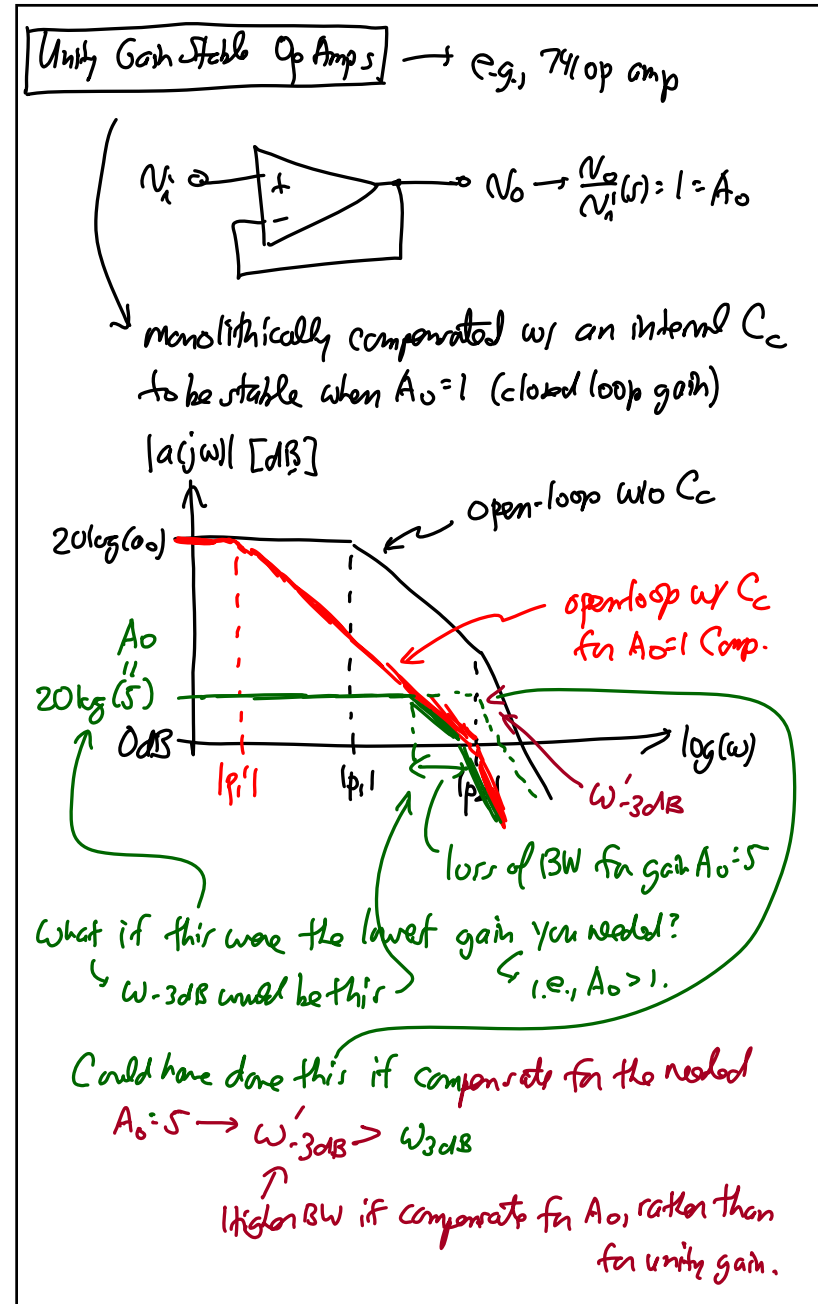 Unity Gain Stable Op Amps → e.g., 741 op amp
+
-
v_i
v_o → v_o/v_i (s) = 1 = A_0
monolithically compensated w/ an internal C_c
to be stable when A_0 = 1 (closed loop gain)
|a(jω)| [dB]
open-loop w/o C_c
20log(a_0)
open loop w/ C_c
for A_0=1 Comp.
A_0
=
20log(5)
0dB
log(ω)
|p_1'|
|p_1|
|p_2|
ω'_-3dB
loss of BW for gain A_0=5
What if this were the lowest gain you needed?
ω_-3dB would be this
i.e., A_0 > 1.
Could have done this if compensate for the needed
A_0=5 → ω'_-3dB > ω_3dB
Higher BW if compensate for A_0, rather than
for unity gain.